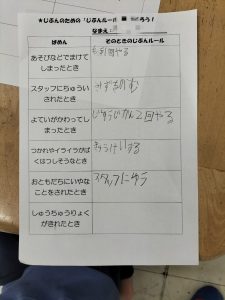 ★じぶんのための「じぶんルール
ろう!
なまえ:
ばめん
そのときのじぶんルール
あそびなどでまけて
しまったとき
スタッフにちゅうい
されたとき
みずをのむ
よていがかわってし
まったとき
つかれやイライラがば
くはつしそうなとき
きゅうけいする
おともだちにいやな
ことをされたとき
スタッフにゆう
しゅうちゅうりょく
がきれたとき